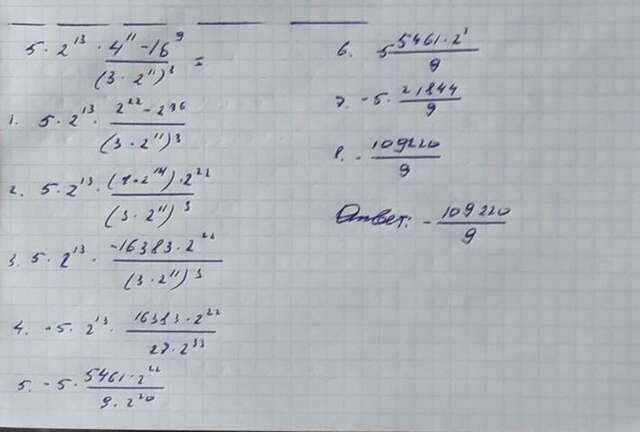 5 · 2¹³ · (4¹¹ - 16⁹)/(3 · 2¹¹)³ =
1. 5 · 2¹³ · (2²² - 2³⁶)/(3 · 2¹¹)³
2. 5 · 2¹³ · ((1 - 2¹⁴) · 2²²)/(3 · 2¹¹)³
3. 5 · 2¹³ · (-16383 · 2²²)/(3 · 2¹¹)³
4. - 5 · 2¹³ · (16383 · 2²²)/(27 · 2³³)
5. - 5 · (5461 · 2²²)/(9 · 2²⁰)
6. 5 (5461 · 2²)/9
7. - 5 · 21844/9
8. - 109220/9
Ответ: - 109220/9